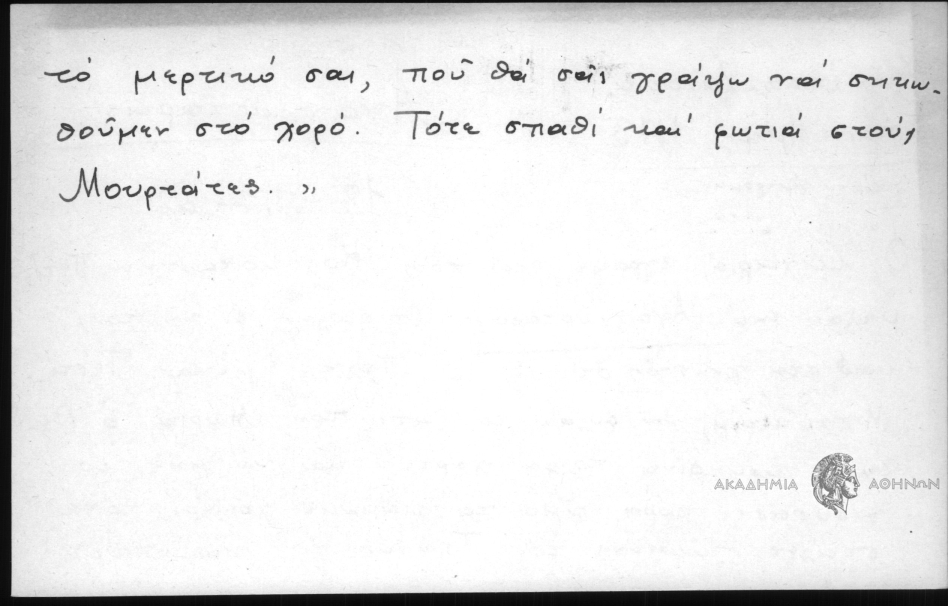 τό μερτικό σας, ποῦ θά σᾶς γράψω νά σηκω-
θοῦμεν στό χορό. Τότε σπαθί καί φωτιά στούς
Μουρτάτες. »
ΑΚΑΔΗΜΙΑ ΑΘΗΝΩΝ